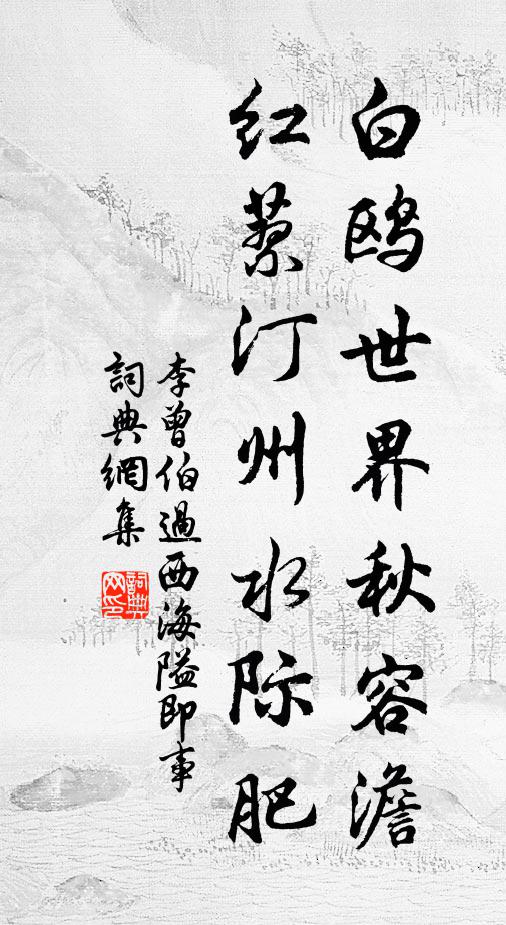 白鷗世界秋容澹
红蓼汀州水际肥
李曾伯過西海隘即事
詞典網集
詞典網印